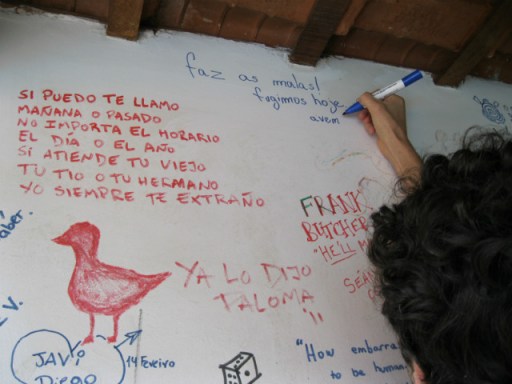 faz as malas!
fogimos hoje
avem
SI PUEDO TE LLAMO
MAÑANA O PASADO
NO IMPORTA EL HORARIO
EL DÍA O EL AÑO
SI ATIENDE TU VIEJO
TU TIO O TU HERMANO
YO SIEMPRE TE EXTRAÑO
FRANK
BUTCHER
"HE'LL
YA LO DIJO
PALOMA
JAVI
DIEGO
14 Feveiro
"How embarra
to be human